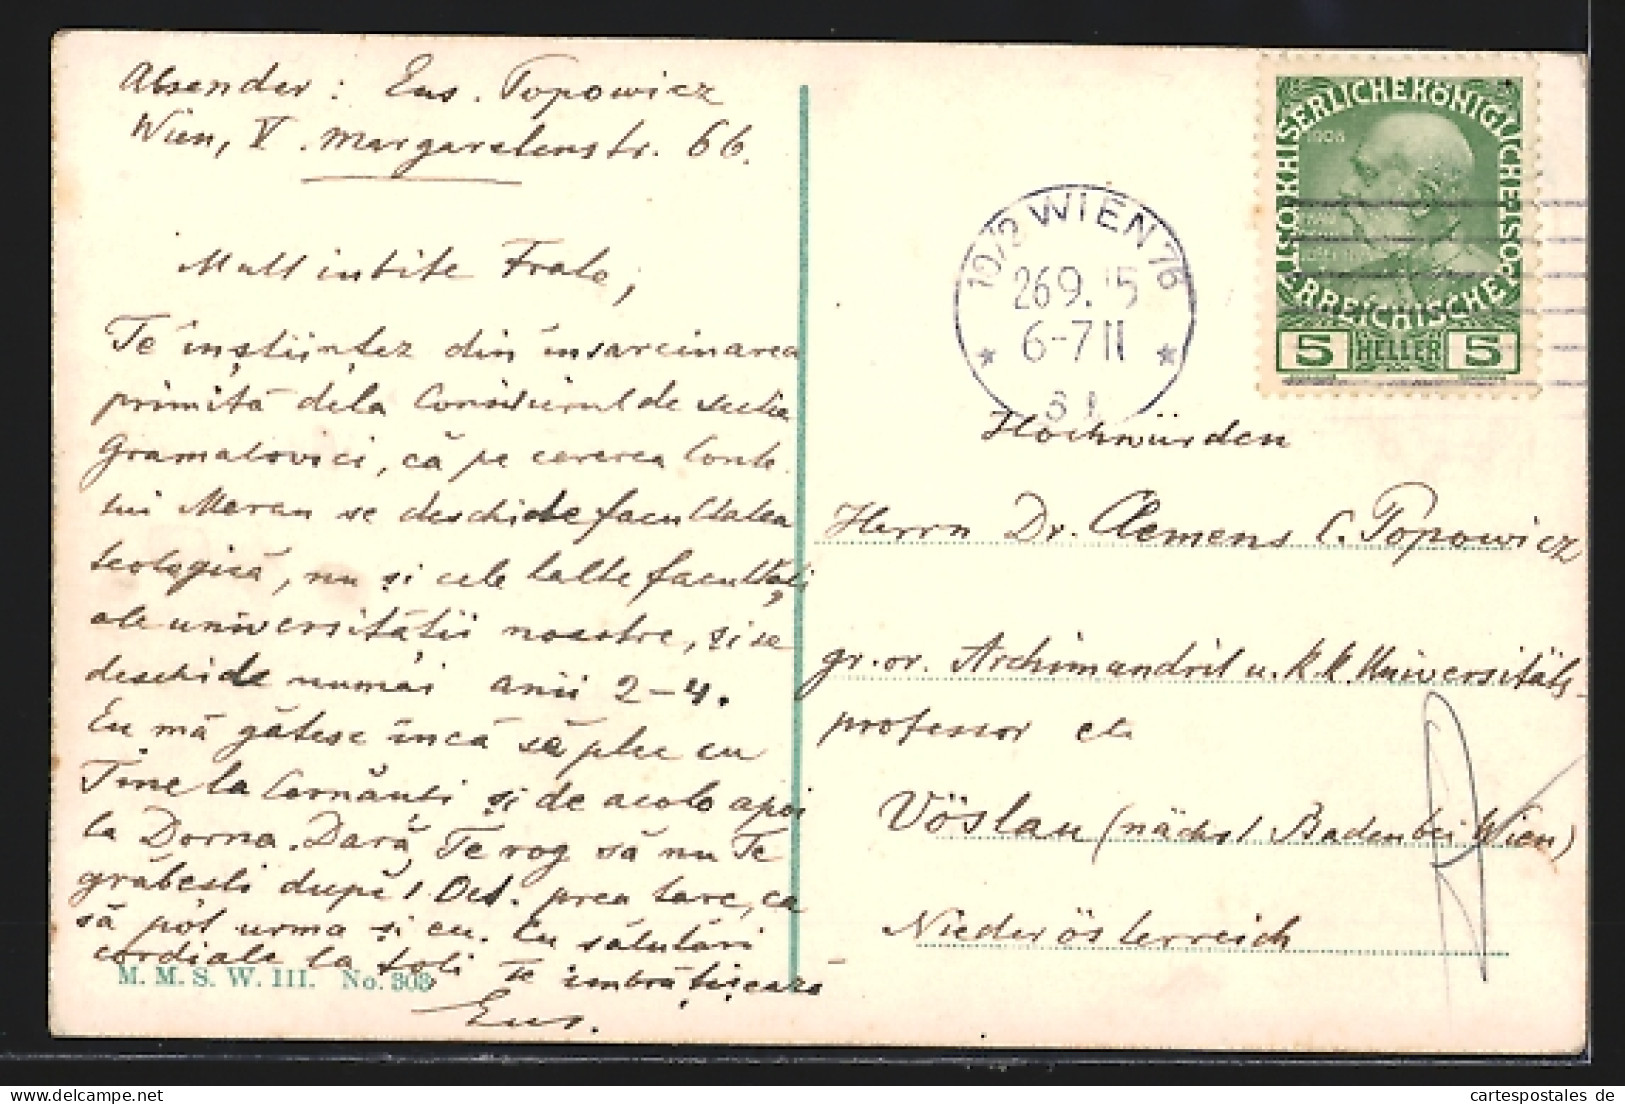 Absender: Eus. Topowicz
Wien, V. Margaretenstr. 66.
Mult iubite Frate,
Te înștiințez din însărcinarea
primită dela Consilierul de secție
Gramatovici, că pe cererea Conte
lui Meran se deschide facultatea
teologică, nu și cele lalte facultăți
ale universității noastre, și se
deschide numai anii 2-4.
Eu mă gătesc încă să plec cu
Tine la Cernăuți și de acolo apoi
la Dorna. Dară Te rog să nu Te
grăbești după 1 Oct. prea tare, ca
să pot urma și eu. Cu sălutări
cordiale la toți Te îmbrățișează
Eus.
M. M. S. W. III. No. 303
KAISERLICHE KÖNIGLICHE ÖSTERREICHISCHE POST
1908
5 HELLER 5
10/2 WIEN 76
26 9. 15
6-7 II
Hochwürden
Herrn Dr. Clemens C. Popowicz
gr.-or. Archimandrit u. k.k. Universitäts-
professor etc
Vöslau (nächst Baden bei Wien)
Niederösterreich
cartespostales de